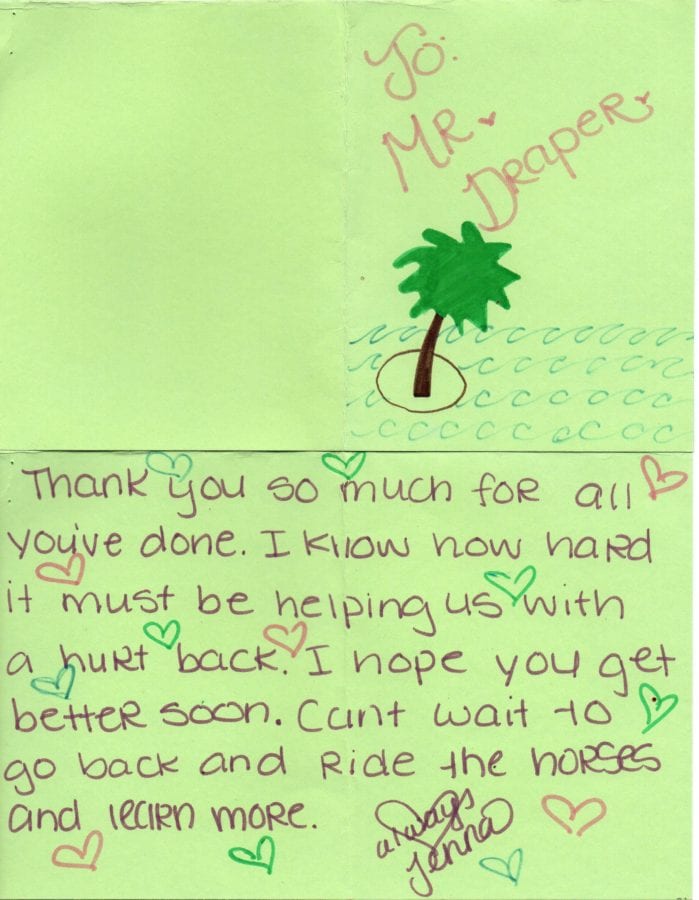 To:
MR.
DRapeR.
Thank you so much for all
you've done. I know how hard
it must be helping us with
a huRt back. I hope you get
betteR soon. Cant wait to
go back and Ride the hoRses
and leaRn moRe.
always
Jenna